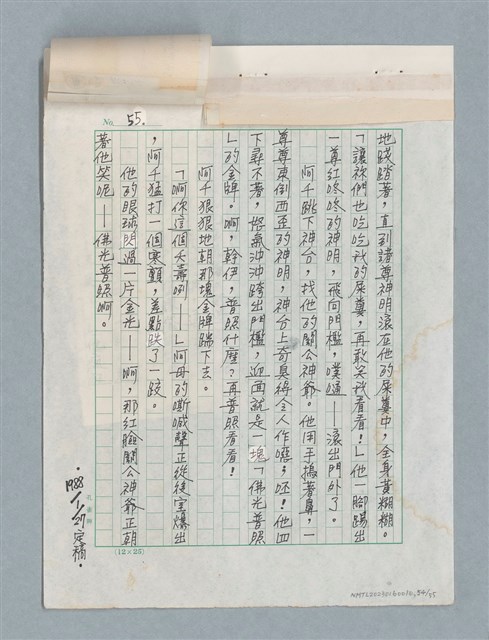 No. 55.
地踐踏著，直到諸尊神明滾在他的屎糞中，全身黃糊糊。
「讓祢們也吃吃我的屎糞，再敢笑我看看！」他一腳踢出
一尊紅咚咚的神明，飛向門檻，噗嗵——滾出門外了。
阿千跳下神台，找他的關公神爺。他用手摀著鼻，一
尊尊東倒西歪的神明，神台上奇臭得令人作嘔；呸！他四
下尋不著，怒氣沖沖跨出門檻，迎面就是一塊「佛光普照
」的金牌。啊，幹伊，普照什麼？再普照看看！
阿千狠狠地朝那塊金牌踹下去。
「啊你這個夭壽咧——」阿母的嘶喊聲正從後室爆出
，阿千猛打一個寒顫，差點跌了一跤。
他的眼球閃過一片金光——啊，那紅臉關公神爺正朝
著他笑呢——佛光普照啊。
·1988 1/27定稿·
(12×25)